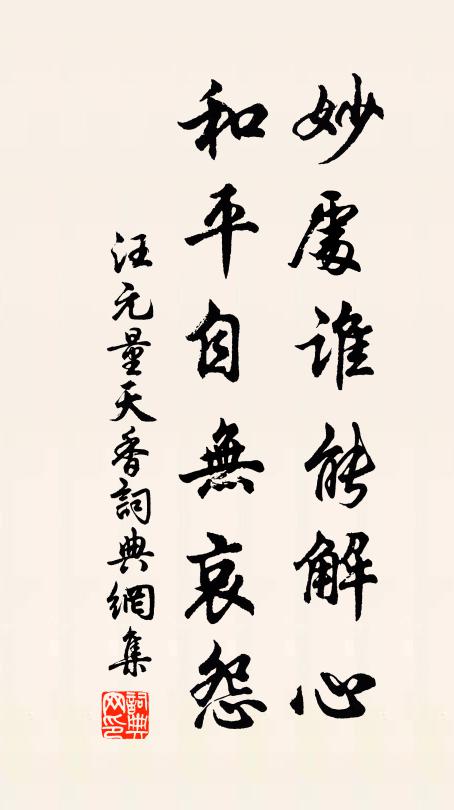 妙處誰能解心
和平自無哀怨
汪元量天香詞典網集
詞典網印